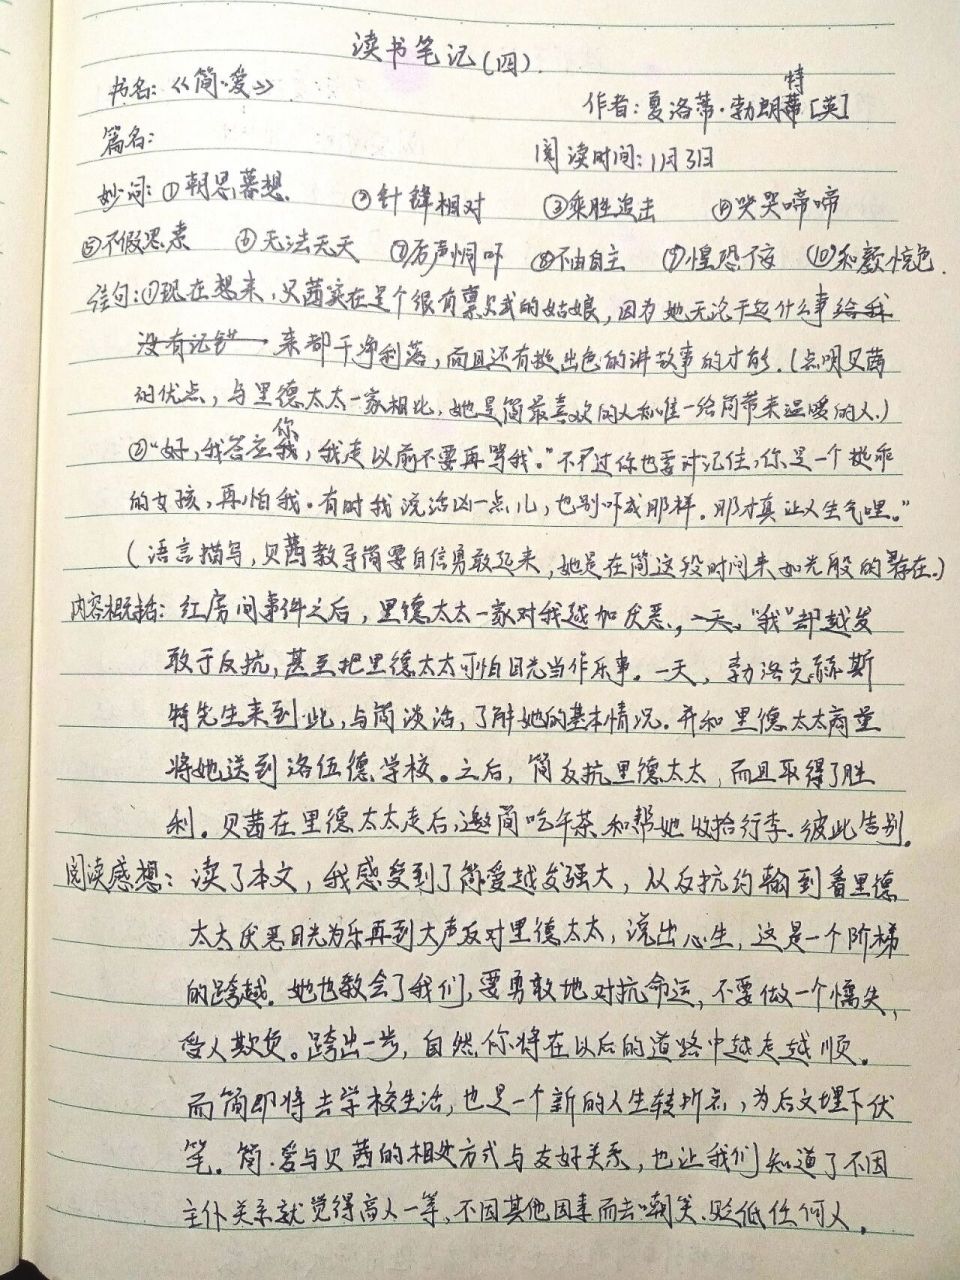 读书笔记(四).
书名:《简·爱》
作者:夏洛蒂·勃朗特[英]
篇名:
阅读时间:1月3日
妙词:①朝思暮想. ②针锋相对 ③乘胜追击 ④哭哭啼啼
⑤不假思索 ⑥无法无天 ⑦厉声恫吓 ⑧不由自主 ⑨惶恐不安 ⑩和颜悦色.
佳句:①现在想来,贝茜实在是个很有禀赋的姑娘,因为她无论干起什么事给我
没有记错 来都干净利落,而且还有挺出色的讲故事的才能.(点明贝茜
的优点,与里德太太一家相比,她是简最喜欢的人和唯一给简带来温暖的人.)
②"好,我答应你,我走以前不要再骂我。"不过你也要对记住,你是一个挺乖
的女孩,再怕我。有时我说话凶一点儿,也别吓成那样.那才真让人生气哩。"
(语言描写,贝茜教导简要自信勇敢起来,她是在简这段时间来如光般的存在.)
内容概括:红房间事件之后,里德太太一家对我越加厌恶.,一天,"我"却越发
敢于反抗,甚至把里德太太可怕目光当作乐事。一天,勃洛克赫斯
特先生来到此,与简谈话,了解她的基本情况.并和里德太太商量
将她送到洛伍德学校。之后,简反抗里德太太,而且取得了胜
利。贝茜在里德太太走后,邀简吃午茶和帮她收拾行李.彼此告别.
阅读感想:读了本文,我感受到了简爱越发强大,从反抗约翰到看里德
太太厌恶目光为乐再到大声反对里德太太,说出心生,这是一个阶梯
的跨越.她也教会了我们,要勇敢地对抗命运,不要做一个懦夫,
受人欺负。跨出一步,自然你将在以后的道路中越走越顺.
而简即将去学校生活,也是一个新的人生转折点,为后文埋下伏
笔。简·爱与贝茜的相处方式与友好关系,也让我们知道了不因
主仆关系就觉得高人一等,不因其他因素而去嘲笑、贬低任何人.